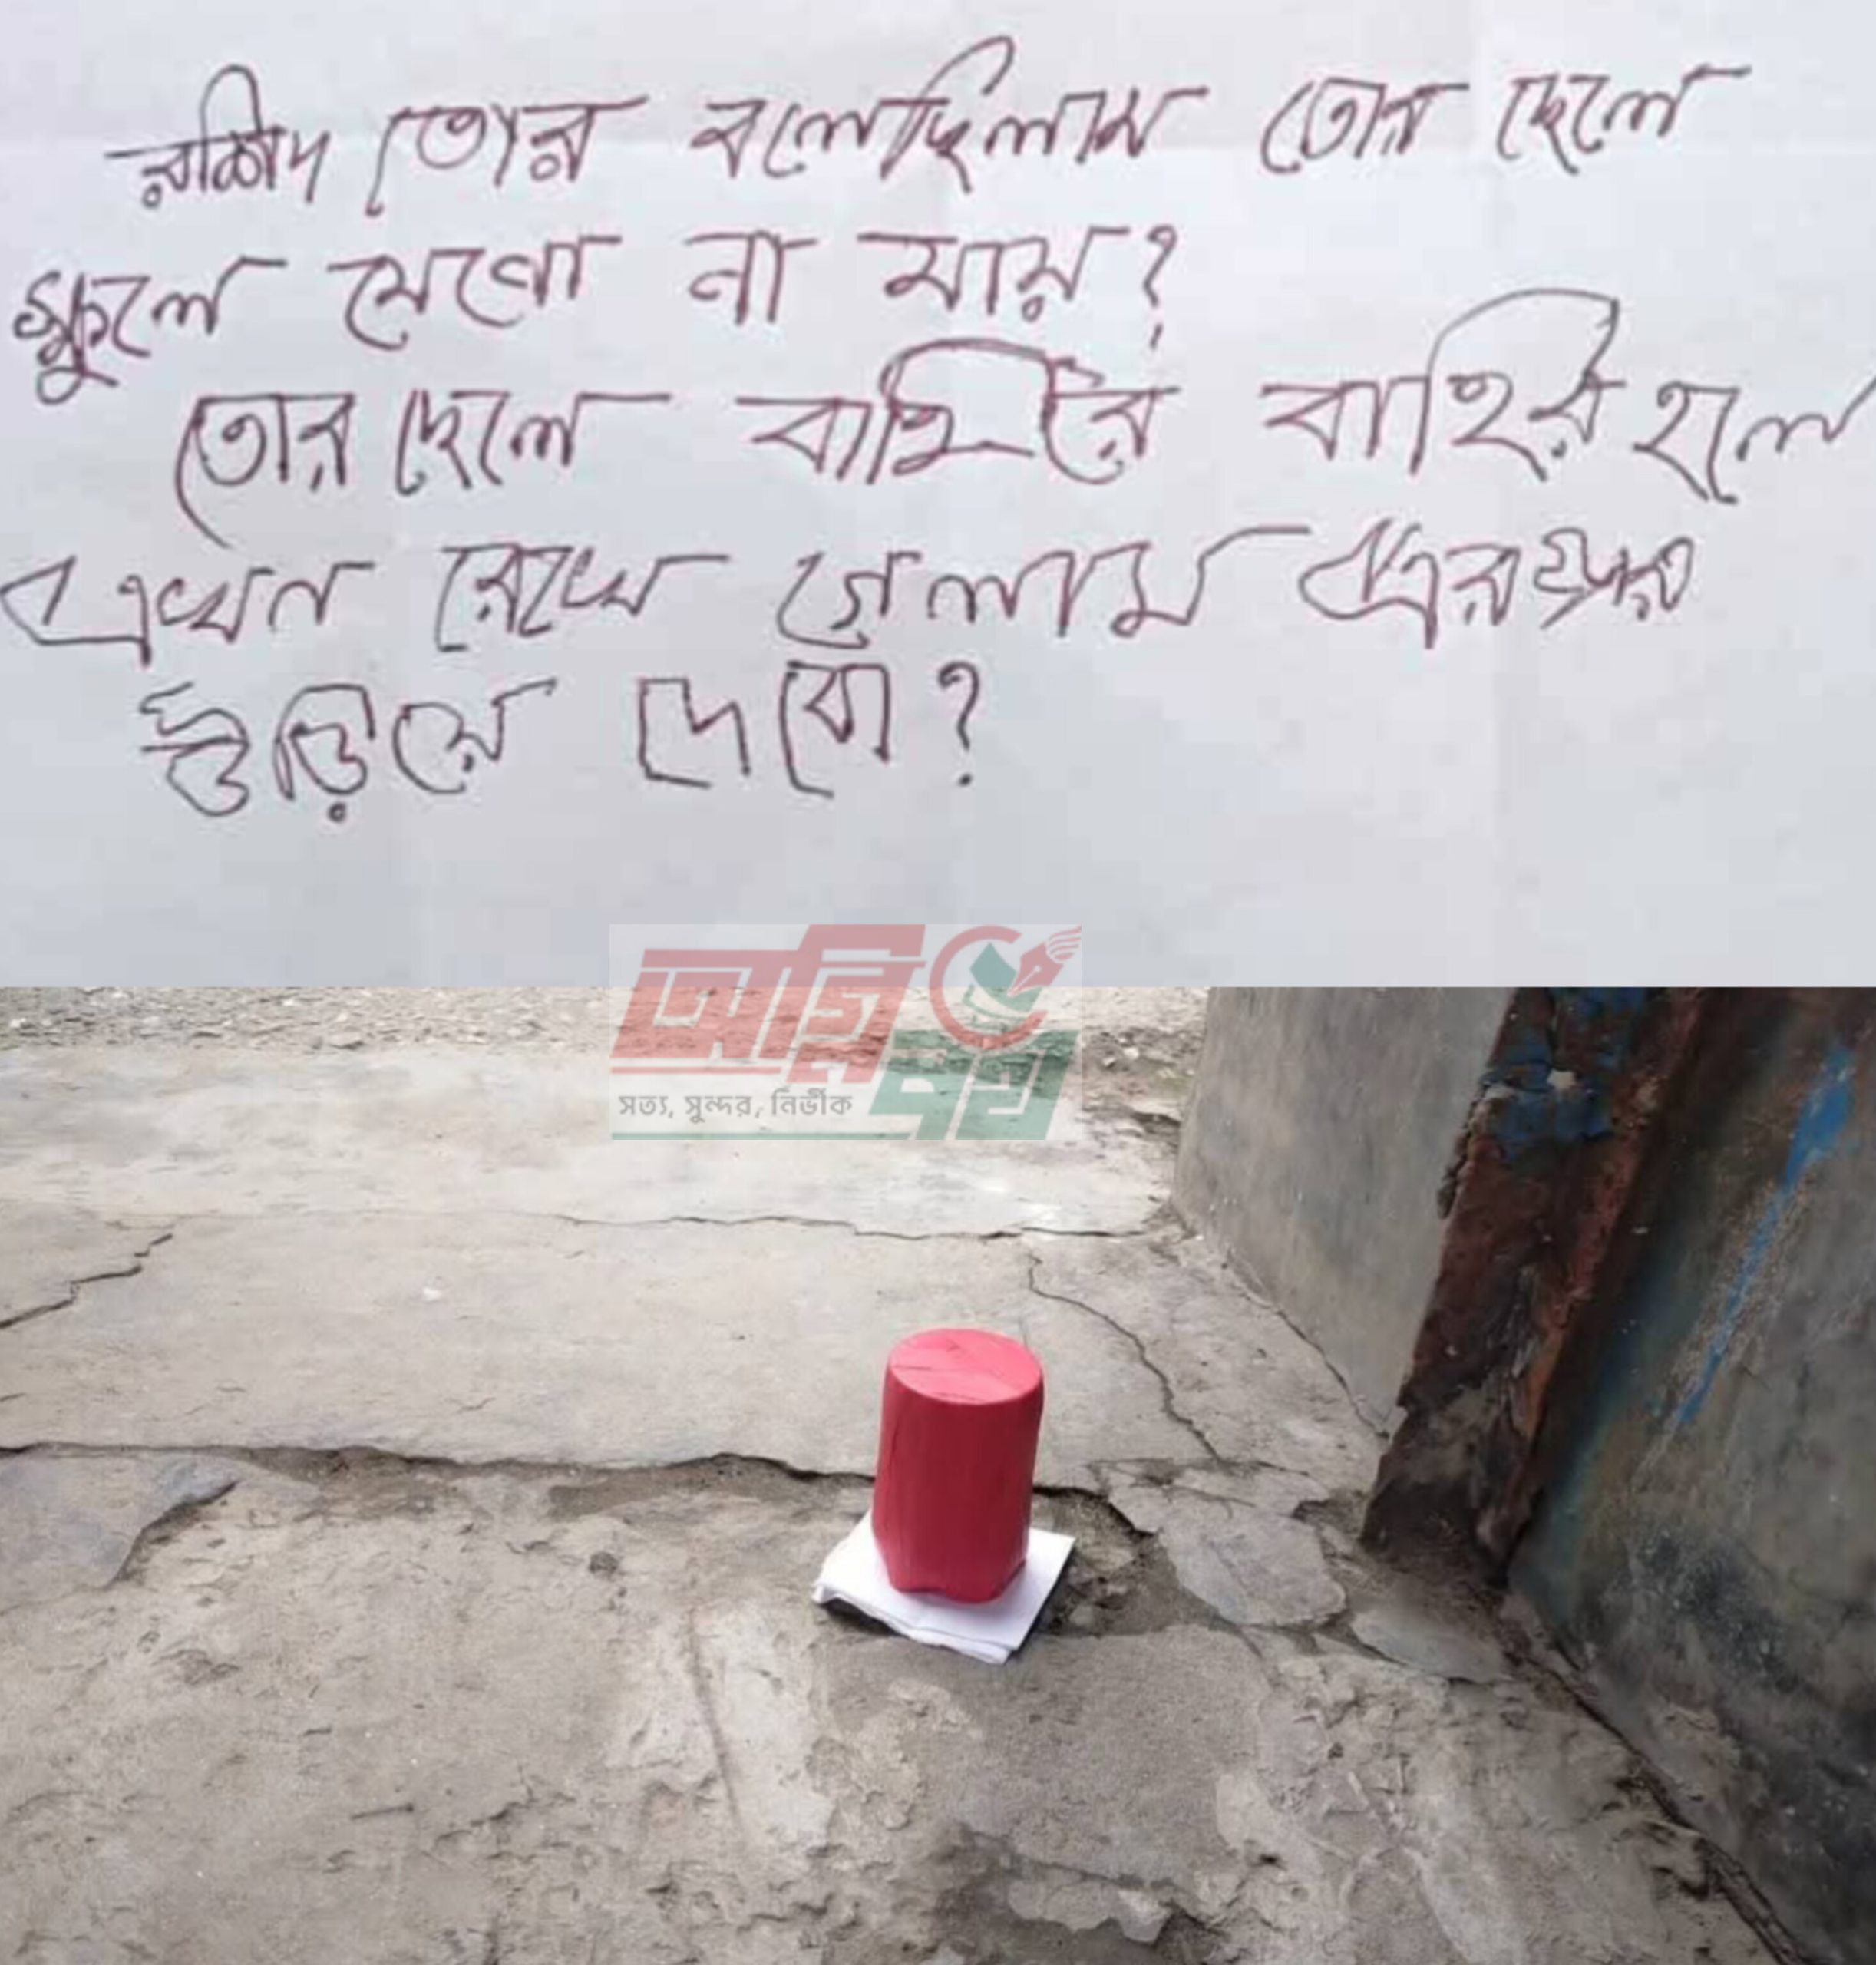 রশিদ তোর বলেছিলাম তোর ছেলে
স্কুলে যেণো না যায়?
তোর ছেলে বাহিরে বাহির হলে
এখন রেখে গেলাম এরপর
উড়িয়ে দেবো?
অগ্নিপত্র
সত্য, সুন্দর, নির্ভীক